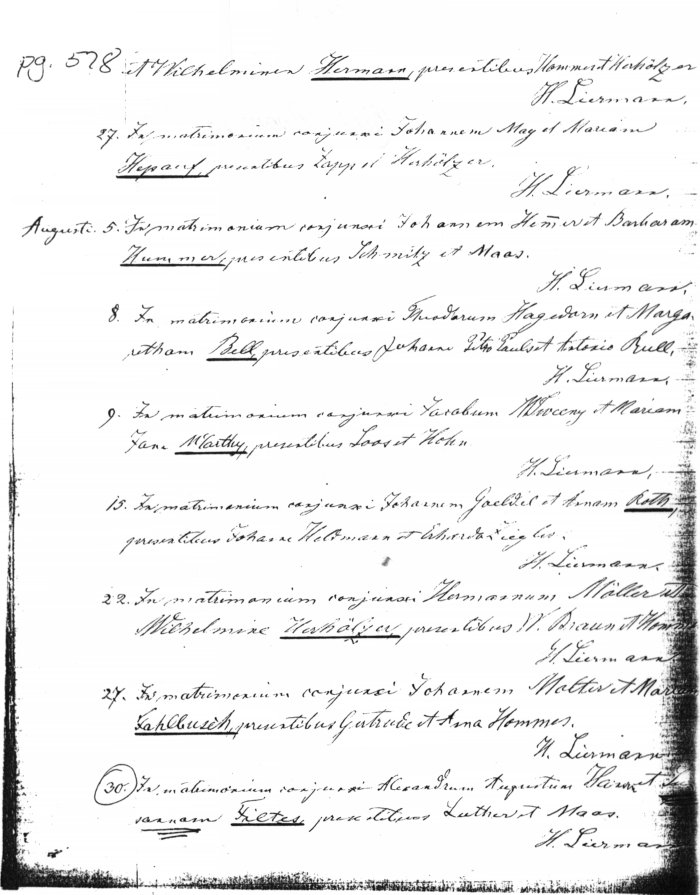 pg. 578 et Wilhelminen Hermann, presentibus Hommes et Herhölzer
H. Liermann.
27. In matrimonium conjunxi Johannem May et Mariam
Hepauf, presentibus Zappel Herhölzer.
H. Liermann.
Augusti. 5. In matrimonium conjunxi Johannem Hem̄er et Barbaram
Hummer, presentibus Schmitz et Maas.
H. Liermann.
8. In matrimonium conjunxi Theodorum Hagedorn et Marga
retham Bell, presentibus Johanne Petro Pauls et Antonio Bull,
H. Liermann.
9. In matrimonium conjunxi Jacobum et Mariam
Jane McCarthy, presentibus Loos et Hohn
H. Liermann.
15. In matrimonium conjunxi Johannem Goeldel et Annam Roth,
presentibus Johanne Heldmann et Erhardo Ziegler.
H. Liermann.
22. In matrimonium conjunxi Hermannum Möller et
Wilhelmine Herhölzer, presentibus W. Braun et Homm
H. Liermann
27. In matrimonium conjunxi Johannem Molter et Maria
Fahlbusch, presentibus Gertrude et Anna Hommes.
H. Liermann
30. In matrimonium conjunxi Alexandrum Augustum et
sannam Filtes, presentibus Luther et Maas.
H. Lierman